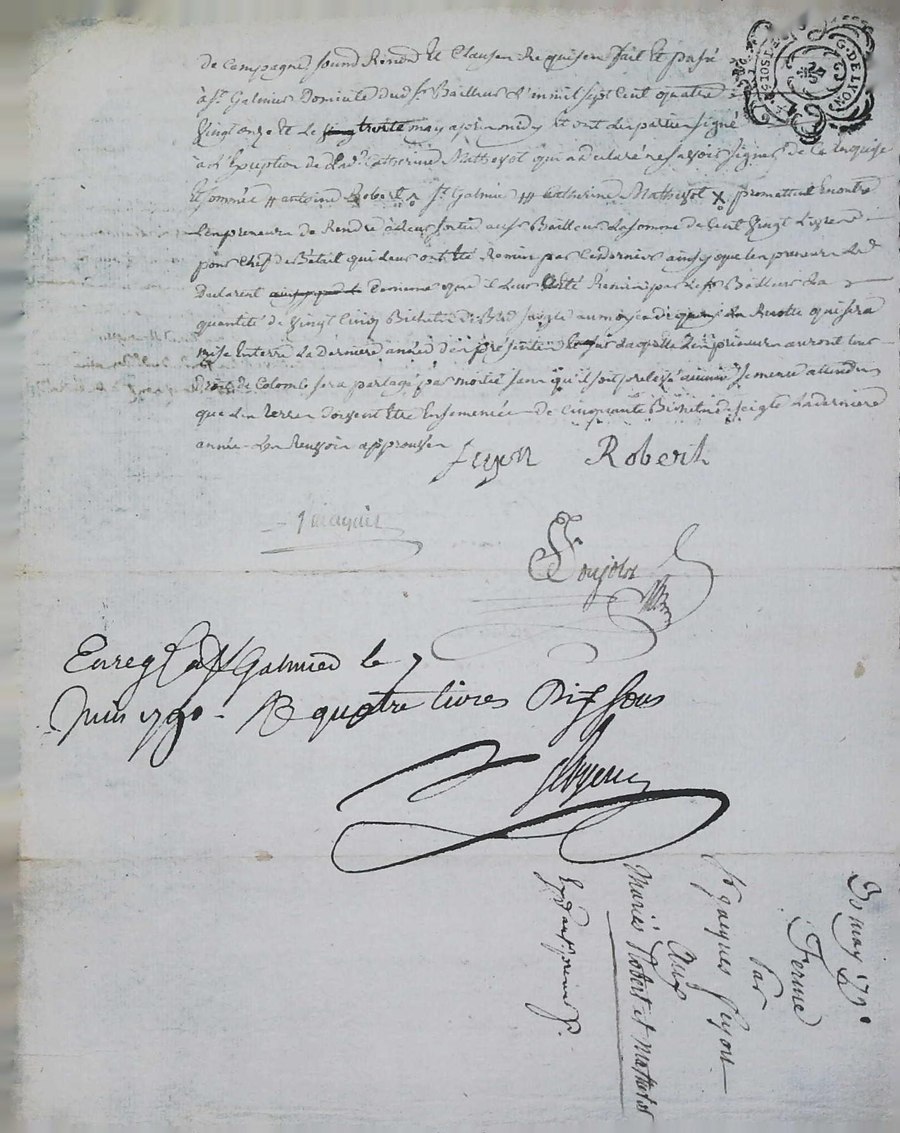 G. DE LYON
de Campagne sound Renonc et Clausen Requisen fait et passé
à St. Galmier Domicile dud. sr. Bailleur L'an mil sept cent quatre
vingt et le trente may après midy et ont les parties signé
à L'Exeption de Lad. Catherine Matheyot qui a déclaré ne savoir signer de ce enquise
et sommée # antoine Robert St. Galmier # Catherine Matheyot x promettent encontre
Les preneurs de Rendre à Leur sortie aud. sr. Bailleur La somme de Cent vingt Livres
pour Chef de Bétail qui Leur ont été Remis par Ce dernier ainsy que Les preneurs Le
Déclarent Comme que il Leur été Remis par Led. sr. Bailleur La
quantité de vingt Cinq Bichets de Bled seigle au moyen de quoy La Recolte qui sera
mise En terre La dernière année des présentes sur Laquelle Les preneurs auront Leur
Droit de Colomb sera partagé par moitié sans qu'il soit prelevé aucune semence attendu
que Les terres doivent être Ensemencée de Cinquante Bichets de seigle La dernière
année Les Renvois approuvés
Feyon Robert
Enreg. à St. Galmier le 7
Juin 1790. R quatre livres Dix sous
30 may 1790
Ferme
Par
Sr. Jacques Feyon
Aux
Mariés Robert et Matheiot
Expd.